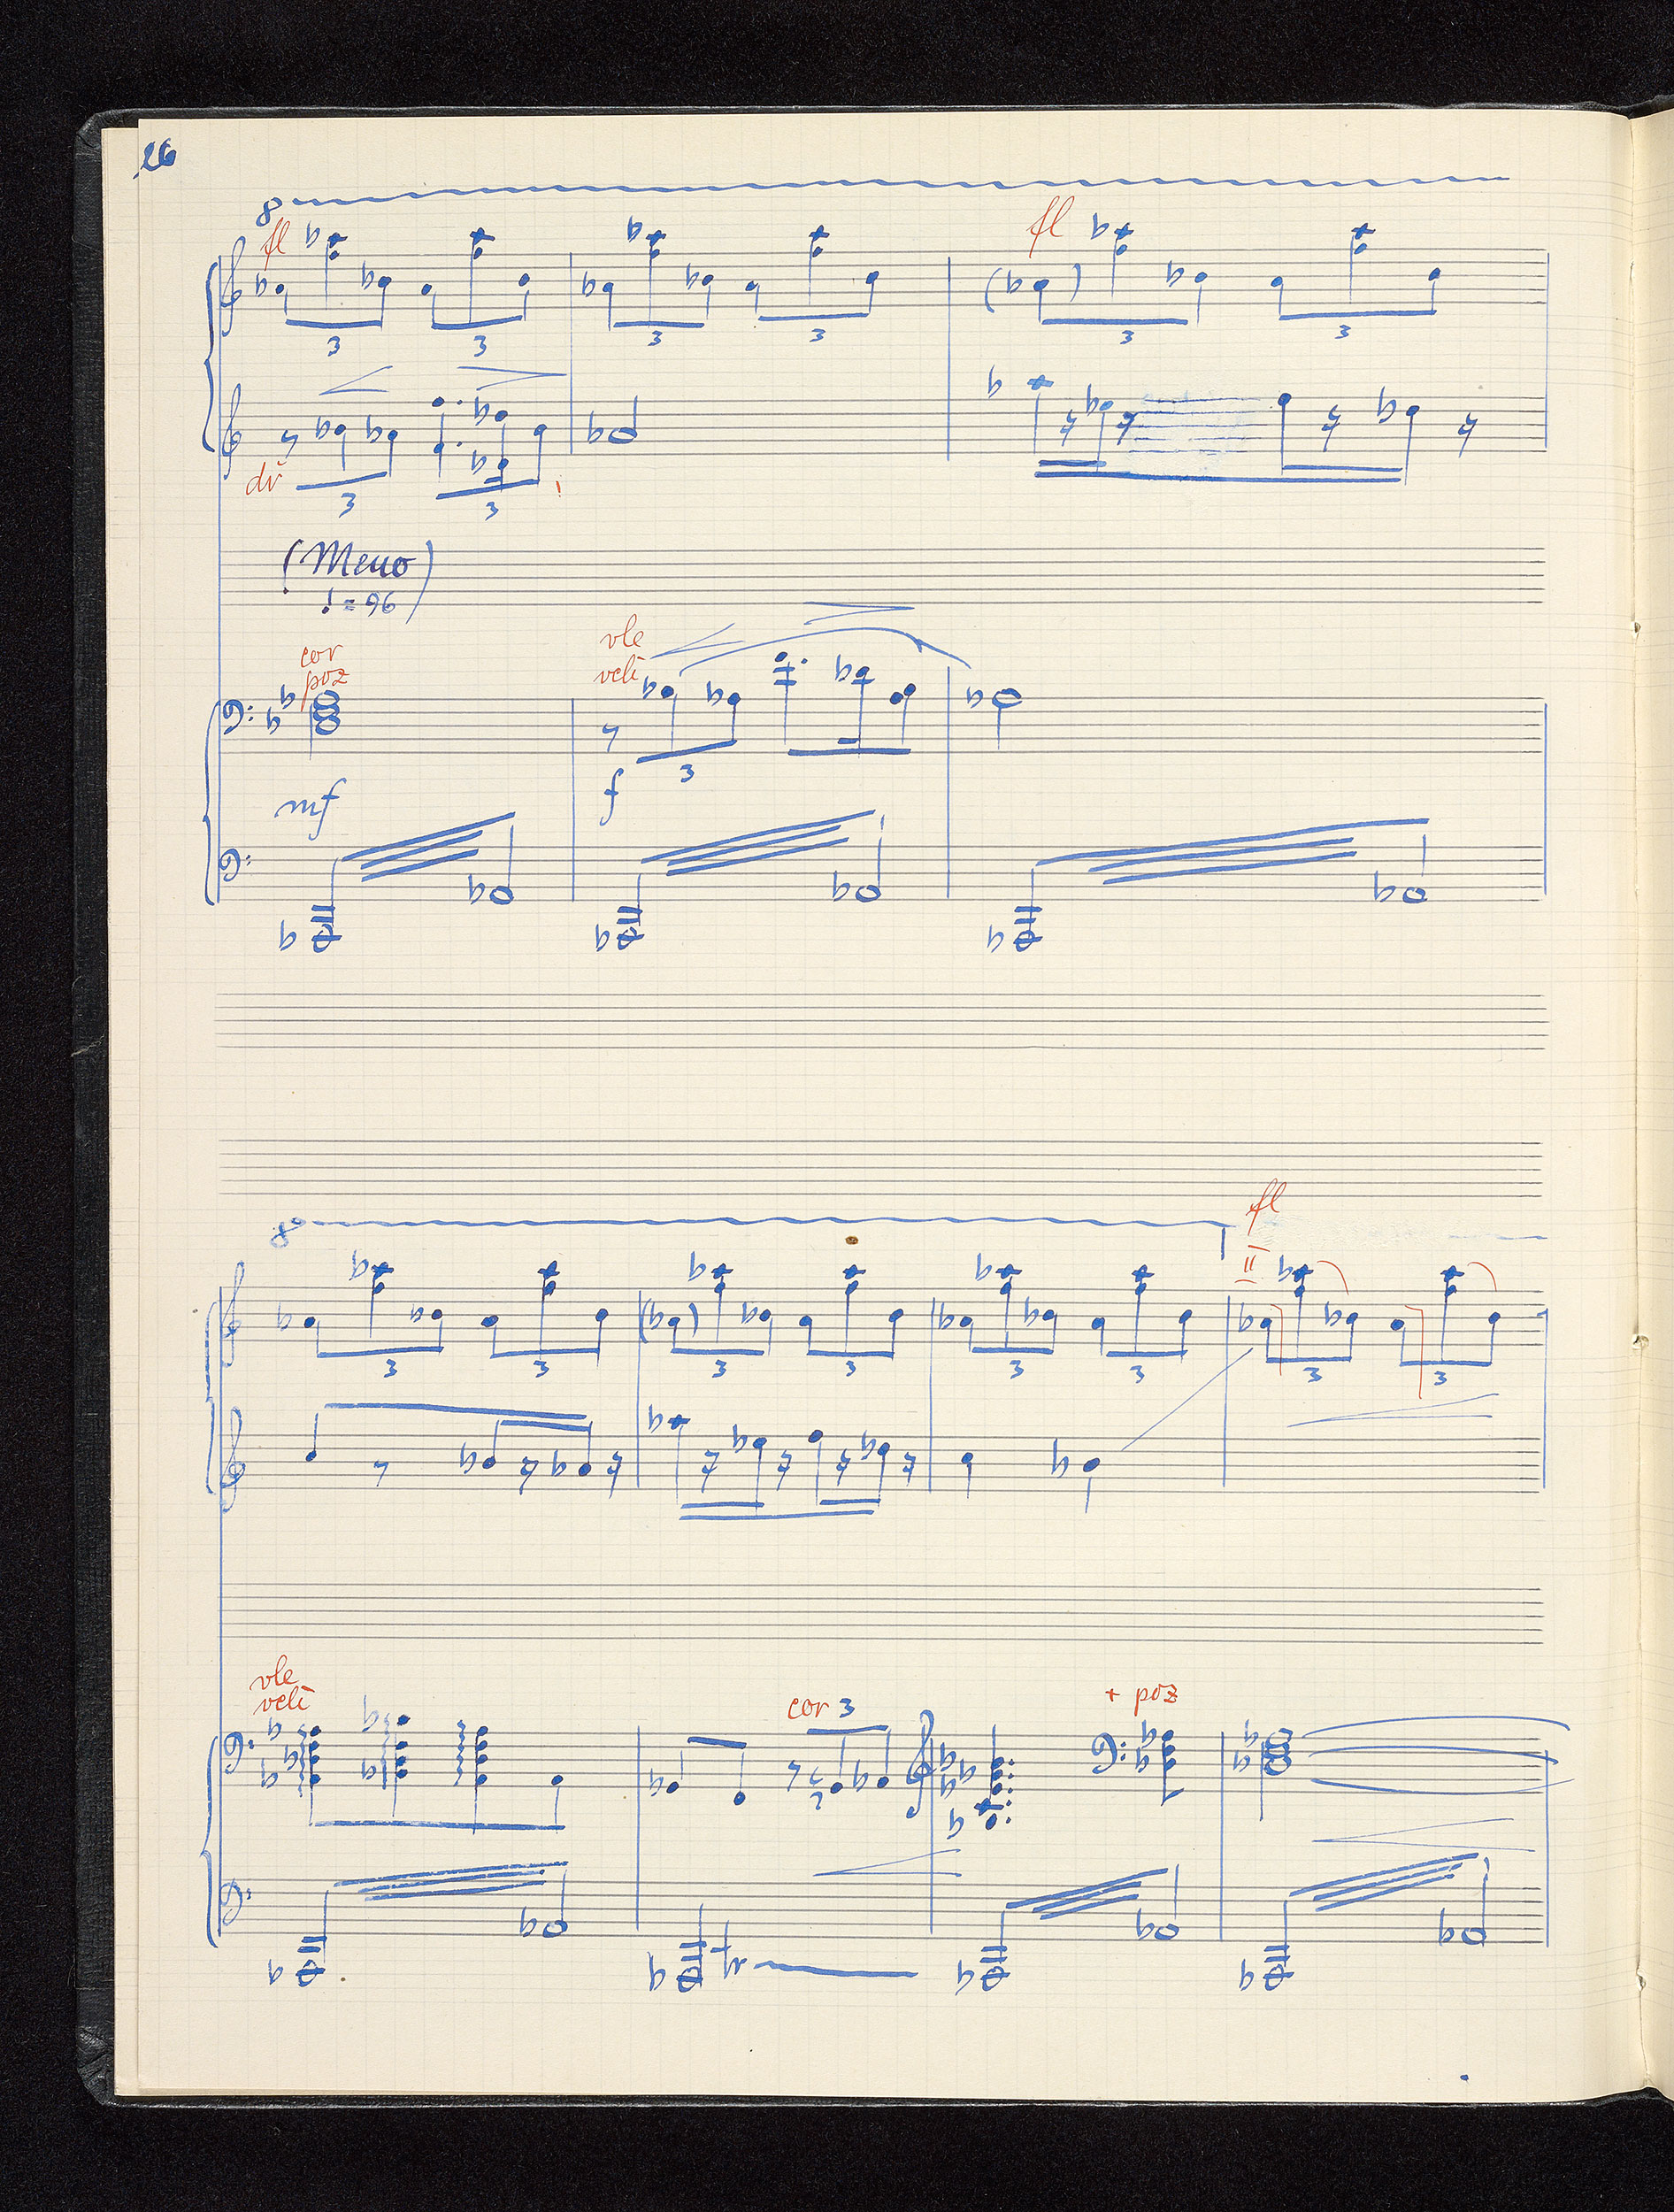 26
8
fl
fl
3 3 3 3 3 3
dř
3 3
(Meno)
♩ = 96
cor
poz
vle
vcli
mf
f
3
fl
8
II
3 3 3 3 3 3 3 3
vle
vcli
cor 3
+ poz
tr